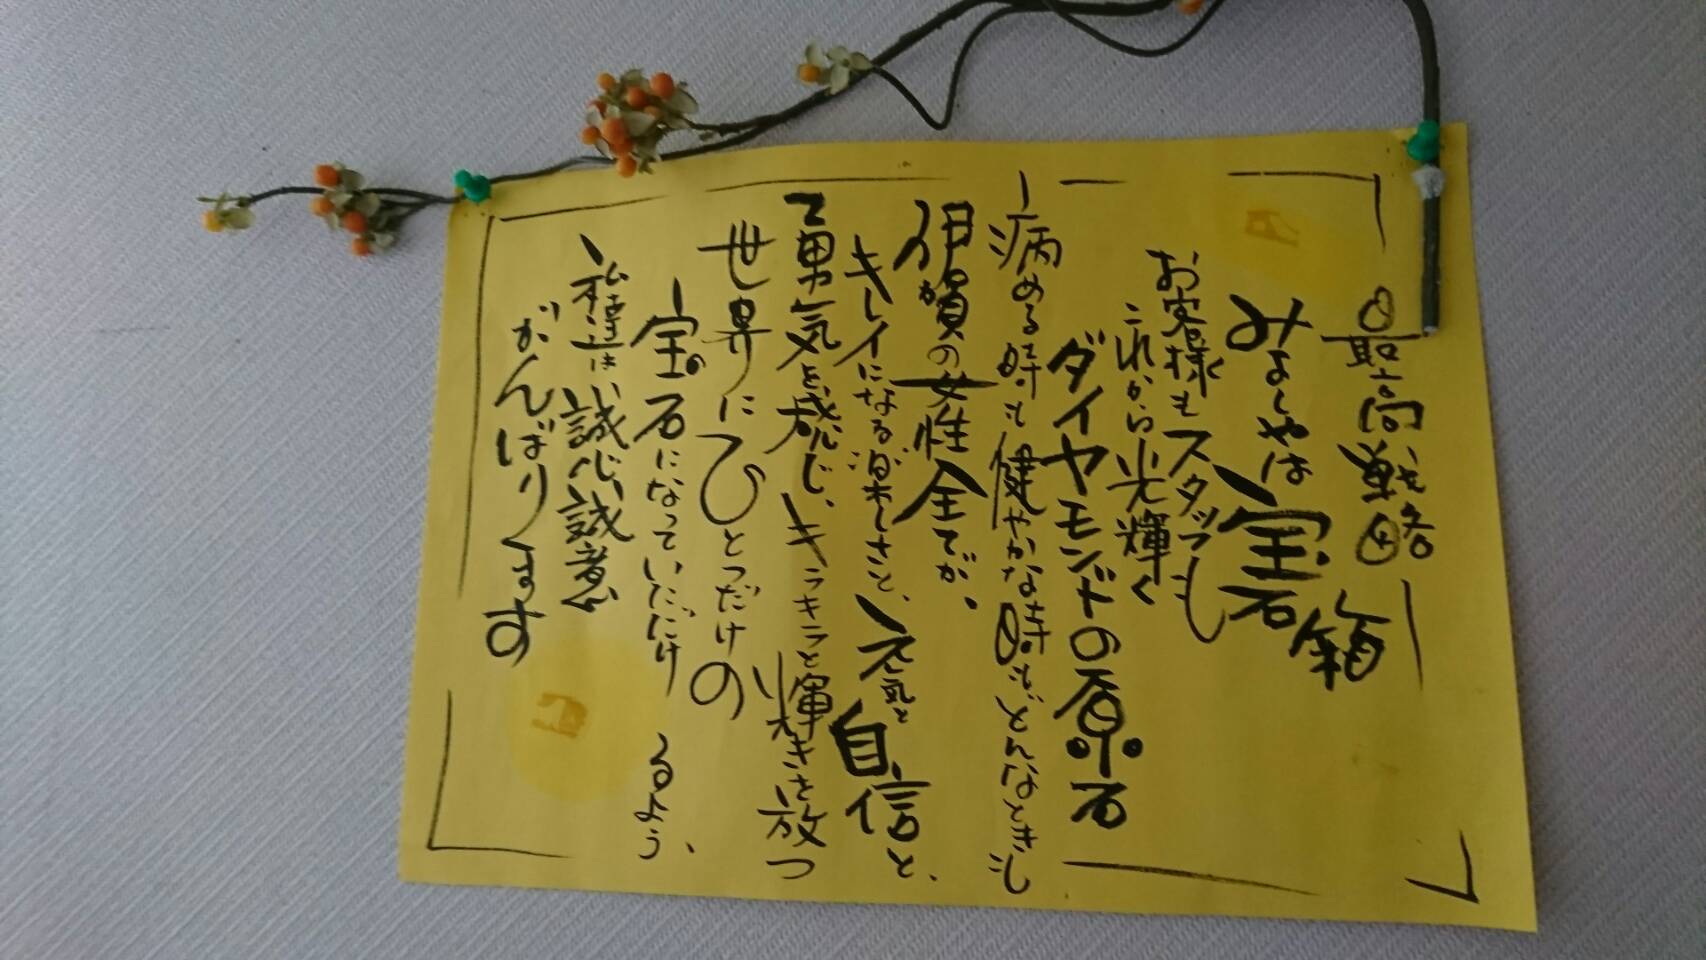 ◎最高戦略◎
みよしやは宝石箱
お客様もスタッフも
これから光輝く
ダイヤモンドの原石
病める時も健やかな時もどんなときも
伊賀の女性全てが、
キレイになる楽しさと、元気と自信と、
勇気を感じ、キラキラと輝きを放つ
世界にひとつだけの
宝石になっていただけるよう、
私達は誠心誠意
がんばります